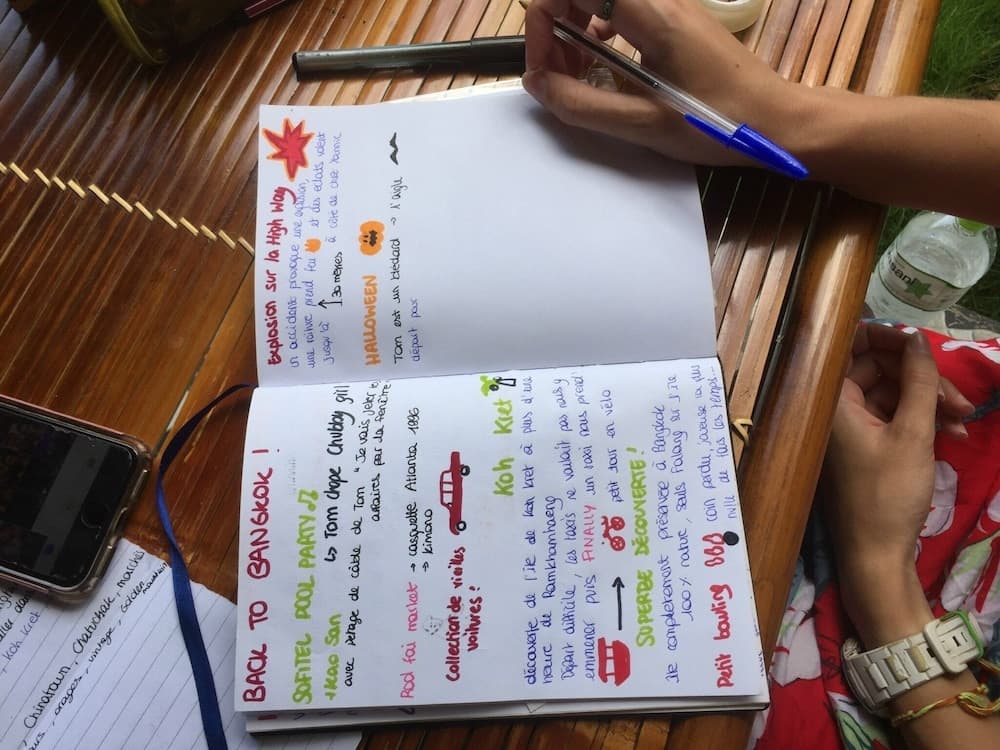 BACK TO BANGKOK !
SOFITEL POOL PARTY
Khao San
↳ Tom chope Chubby girl
avec pétage de câble de Tom "Je vais jeter tes
affaires par la fenêtre"
Rod fai market → casquette Atlanta 1996
→ kimono
Collection de vieilles
voitures !
Koh Kret
découverte de l'île de Koh Kret à plus d'une
heure de Ramkhamhaeng
Départ difficile, les taxis ne voulait pas nous y
emmener puis FINALLY un taxi nous prend!
→ petit tour en vélo
SUPERBE DÉCOUVERTE !
Île complètement préservée à Bangkok
100% nature, seuls Falang sur l'île
Petit bowling coin perdu, joueuse la plus
nulle de tous les temps...
Explosion sur la High Way
un accident provoque une explosion,
une voiture prend feu et des éclats volent
jusqu'à à côté de chez Yannic
↳ 30 mètres
HALLOWEEN
Tom est un blédard → l'aigle
départ pour
Koh Kret
Chinatown, Chatuchak, marchés
orages, vintage, Golden